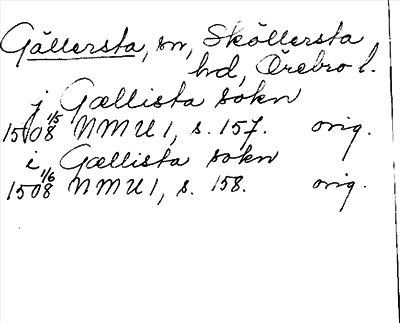 Gällersta, sn, Sköllersta
hd, Örebro l.
j Gællista sokn
1508 1/5 NMU 1, s. 157. orig.
i Gællista sokn
1508 1/6 NMU 1, s. 158. orig.